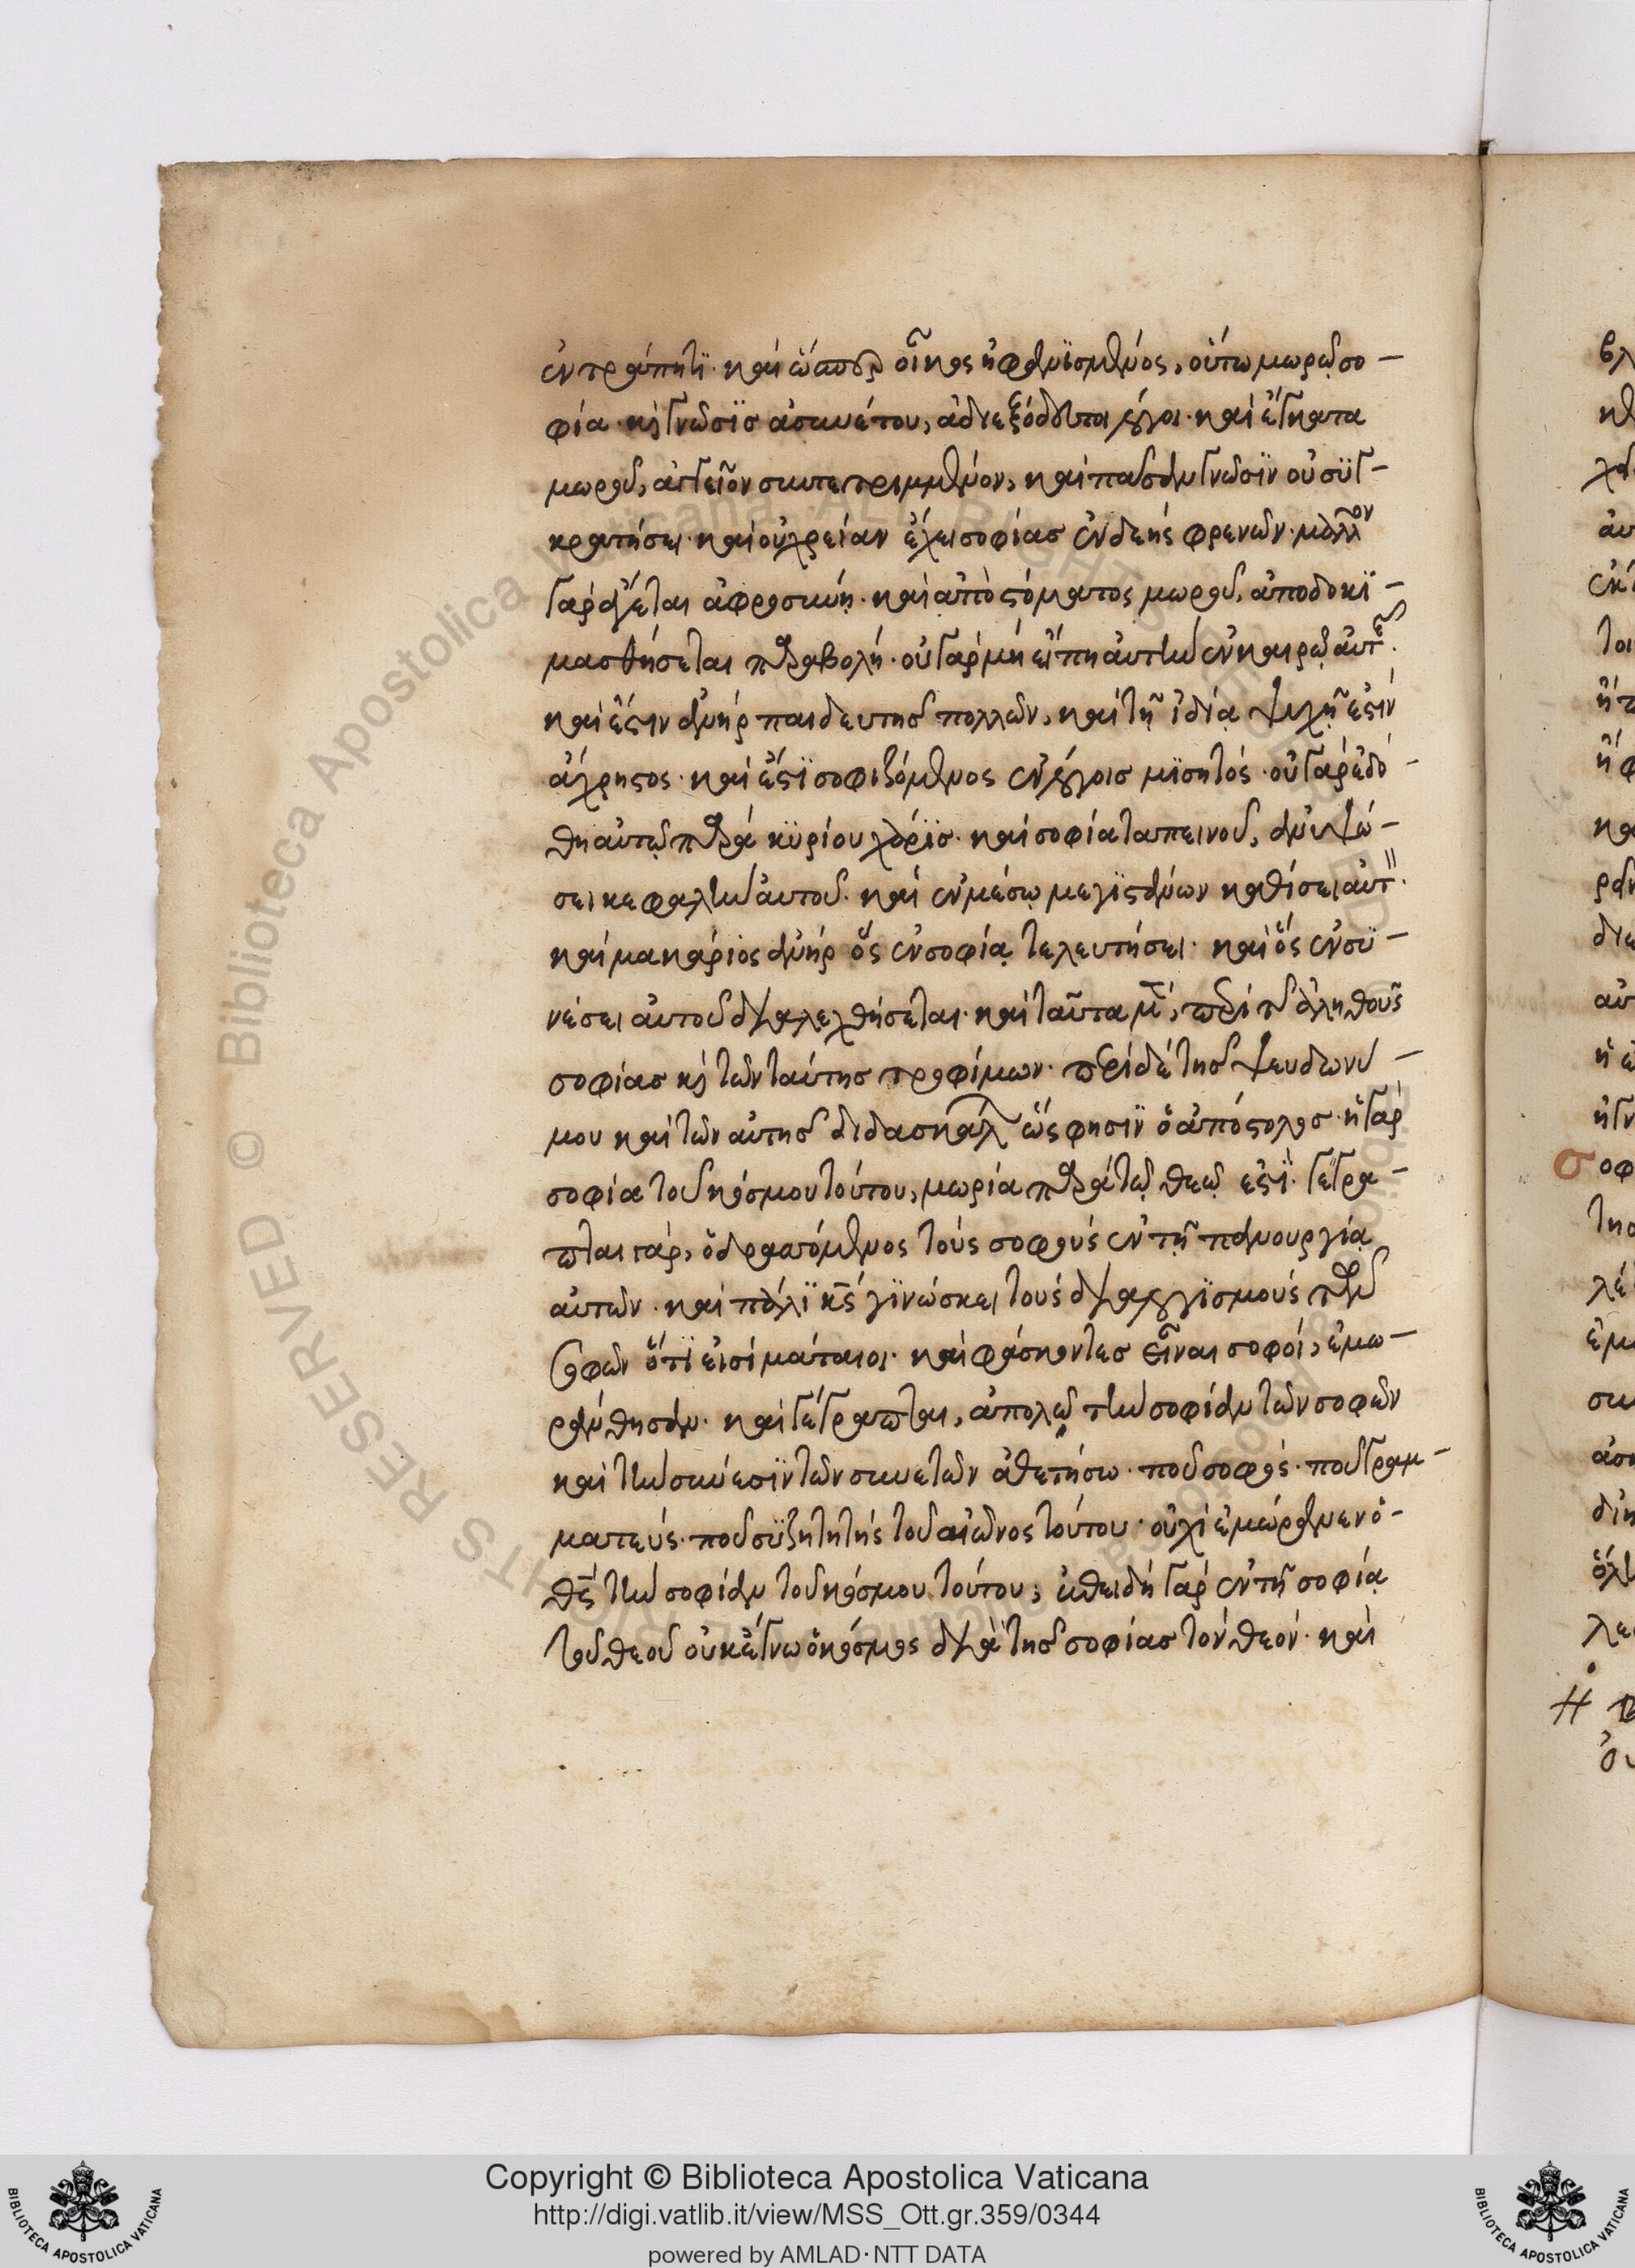 ἐντραύπητϊ· καὶ ὥσπερ οἶκος ἠφανϊσμένος, οὕτω μωρῷ σο-
φία· κ(αὶ) γνῶσϊσ ἀσυνέτου, ἀδιεξόδευτοι λόγοι· καὶ ἔγκατα
μωροῦ, ἀγγεῖον συντετριμμένον, καὶ πᾶσαν γνῶσϊν οὐ συγ-
κρατήσει· καὶ οὐ χρείαν ἔχει σοφίασ ἐνδεὴς φρενῶν· μᾶλλον
γὰρ ἄγεται ἀφροσύνη· καὶ ἀπὸ στόματος μωροῦ, ἀποδοκϊ-
μασθήσεται παραβολή· οὐ γὰρ μὴ εἴπη ἀυτὴν ἐν καιρῷ ἀυτῆσ.
καὶ ἔστιν ἀνὴρ παιδευτὴσ πολλῶν, καὶ τῇ ἰδίᾳ ψυχῇ ἐστὶν
ἄχρηστος· καὶ ἔστϊ σοφιζόμενος ἐν λόγοισ μϊσητός· οὐ γὰρ ἐδό-
θη αὐτῷ παρὰ κϋρίου χάρϊσ· καὶ σοφία ταπεινοῦ, ἀνυψώ-
σει κεφαλὴν ἀυτοῦ· καὶ ἐν μέσῳ μεγϊστάνων καθίσει αὐτ·
καὶ μακάρϊος ἀνὴρ ὃς ἐν σοφίᾳ τελευτήσει· καὶ ὃς ἐν σϋ-
νέσει ἀυτοῦ διαλεχθήσεται· καὶ ταῦτα μ(ὲν), περὶ τῆσ ἀληθοῦς
σοφίασ κ(αὶ) τῶν ταύτησ τροφίμων· περὶ δὲ τῆσ ψευδωνύ-
μου καὶ τῶν αὐτῆσ διδασκάλ ὥς φησϊν ὁ ἀπόστολοσ· ἡ γὰρ
σοφία τοῦ κόσμου τούτου, μωρία παρὰ τῷ θεῷ ἐστϊ· γέγρα-
πται γάρ, ὁ δρασσόμενος τοὺς σοφοὺς ἐν τῇ πανουργίᾳ
αὐτῶν· καὶ πάλϊ κ̅ς̅ γϊνώσκει τοὺς διαλογϊσμοὺς τῶν
σοφῶν ὅτϊ εἰσὶ μάταιοι· καὶ φάσκοντεσ εἶναι σοφοί, ἐμω-
ράνθησαν· καὶ γέγραπται, ἀπολῶ τὴν σοφίαν τῶν σοφῶν
καὶ τὴν σύνεσϊν τῶν συνετῶν ἀθετήσω· ποῦ σοφός· ποῦ γραμ-
ματεύς· ποῦ σϋζητητὴς τοῦ αἰῶνος τούτου· οὐχὶ ἐμώρανεν ὁ-
θ̅ς̅ τὴν σοφίαν τοῦ κόσμου τούτου; ἐπειδὴ γὰρ ἐν τῇ σοφίᾳ
τοῦ θεοῦ οὐκ ἔγνω ὁ κόσμος διὰ τῆσ σοφίασ τὸν θεόν· καὶ
Copyright © Biblioteca Apostolica Vaticana
http://digi.vatlib.it/view/MSS_Ott.gr.359/0344
powered by AMLAD·NTT DATA